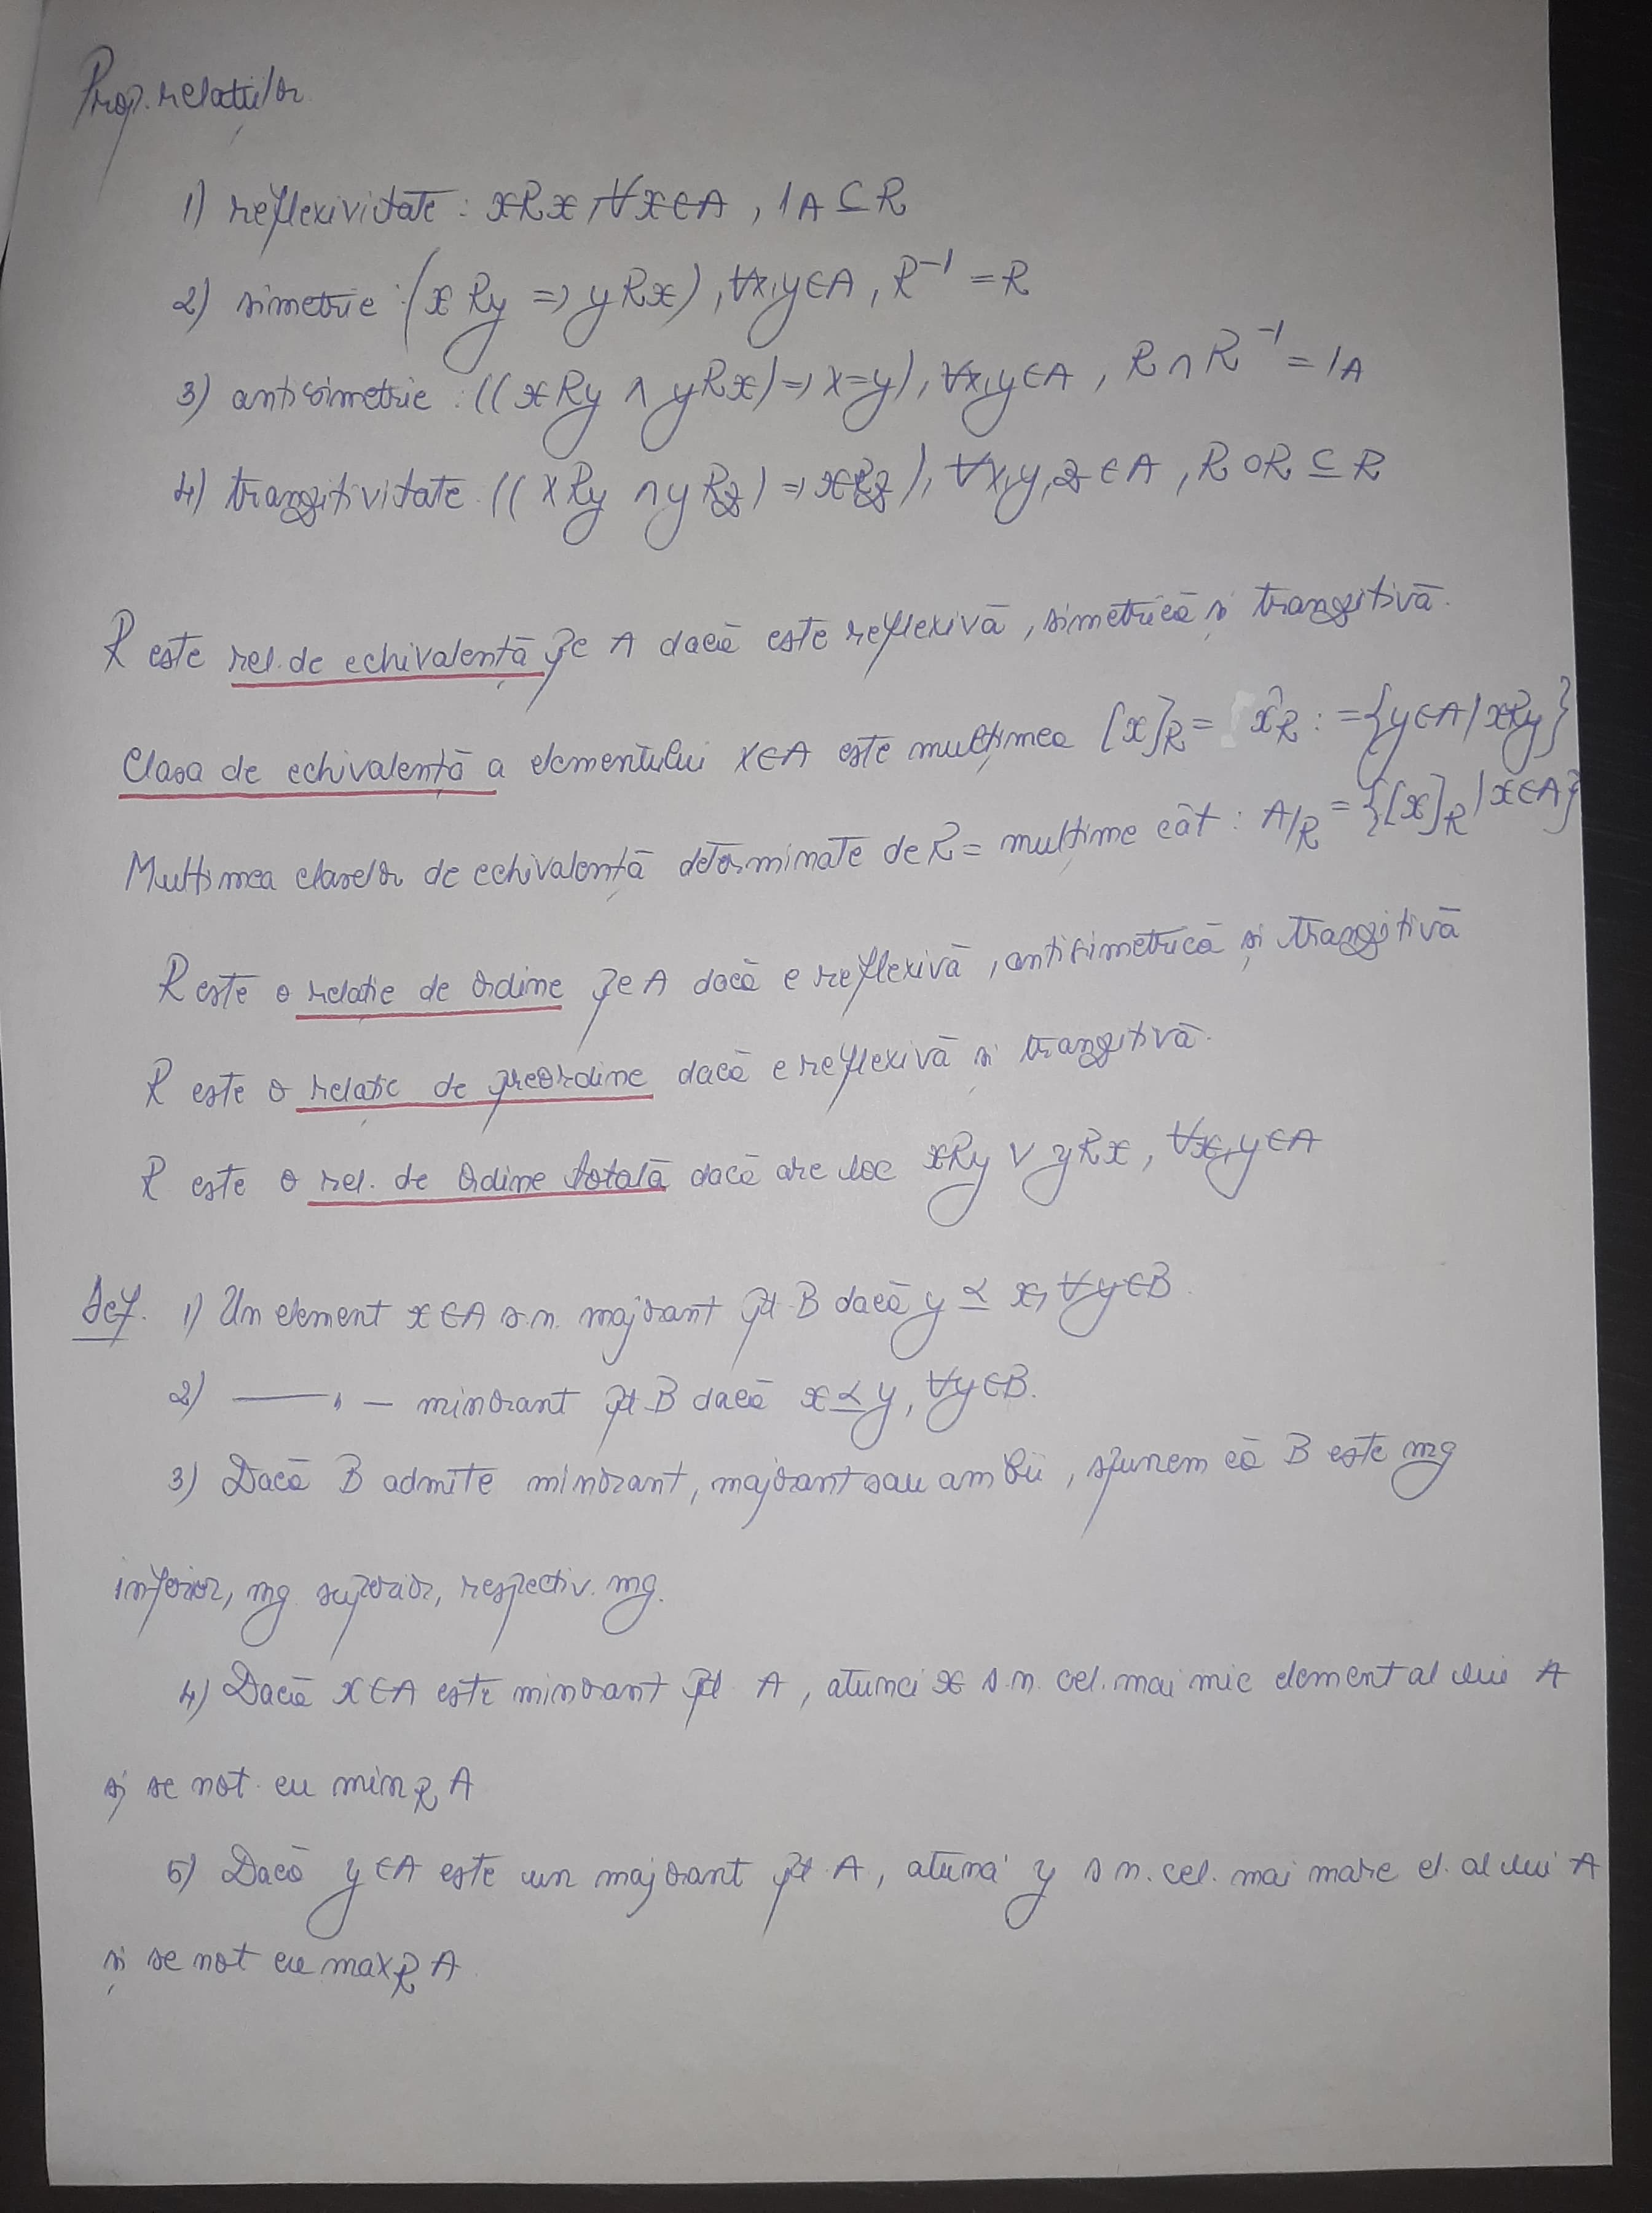 Prop. relațiilor
1) reflexivitate : xRx, ∀x∈A, 1A ⊆ R
2) simetrie : (xRy => yRx), ∀x,y∈A, R⁻¹ = R
3) antisimetrie : ((xRy ∧ yRx) => x=y), ∀x,y∈A, R ∩ R⁻¹ = 1A
4) tranzitivitate ((xRy ∧ yRz) => xRz), ∀x,y,z∈A, R∘R ⊆ R
R este rel. de echivalență pe A dacă este reflexivă, simetrică și tranzitivă.
Clasa de echivalență a elementului x∈A este mulțimea [x]R = x̂R := {y∈A | xRy}
Mulțimea claselor de echivalență determinate de R = mulțime cât : A/R = {[x]R | x∈A}
R este o relație de ordine pe A dacă e reflexivă, antisimetrică și tranzitivă
R este o relație de preordine dacă e reflexivă și tranzitivă.
R este o rel. de ordine totală dacă are loc xRy ∨ yRx, ∀x,y∈A
Def. 1) Un element x∈A s.n. majorant pt B dacă y ⪯ x, ∀y∈B
2) ——,,— minorant pt B dacă x ⪯ y, ∀y∈B.
3) Dacă B admite minorant, majorant sau ambii, spunem că B este mg
inferior, mg superior, respectiv. mg.
4) Dacă x∈A este minorant pt A, atunci x s.n. cel. mai mic element al lui A
și se not. cu minR A
5) Dacă y∈A este un majorant pt A, atunci y s n. cel. mai mare el. al lui A
și se not cu maxR A